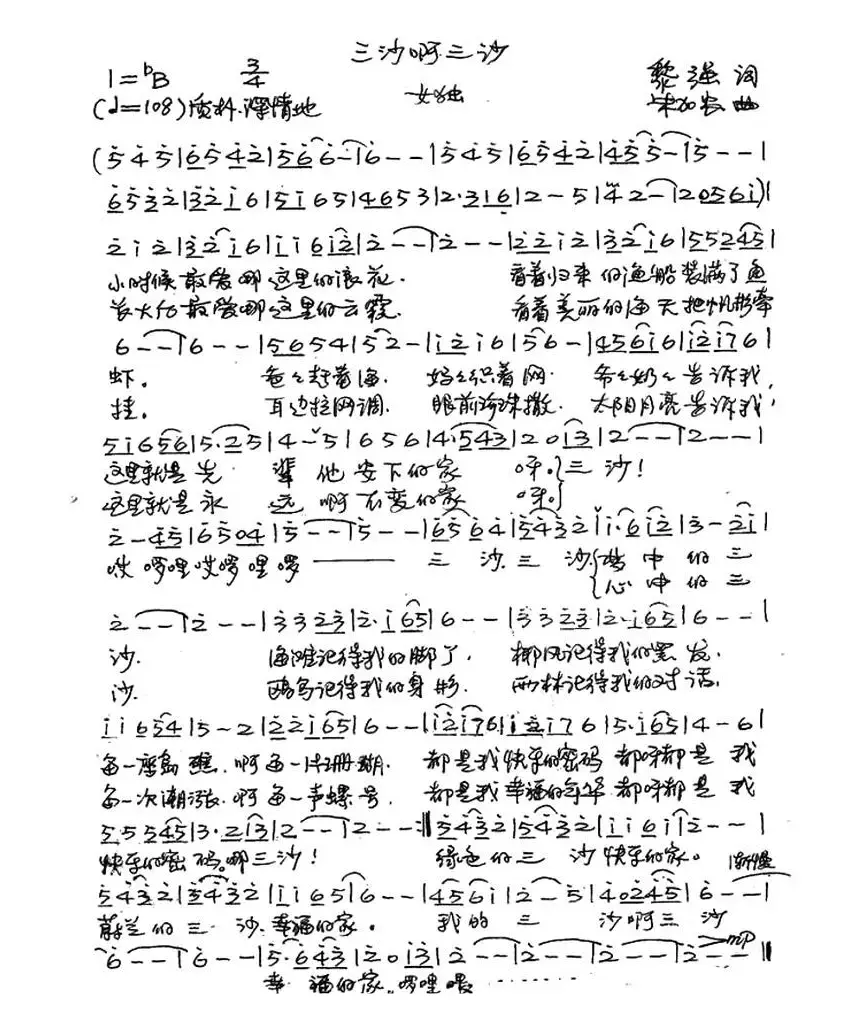 三沙啊三沙
1=ᵇB 3/4 女独 黎强 词
(♩=108) 质朴.深情地 曲
(5 4 5|6 5 4 2|5 6 6 - -|6 - -|5 4 5|6 5 4 2|4 5 5 - -|5 - -|
6 5 3 2|3 2 1 6|5 1 6 5|4 6 5 3|2· 3 1 6|2 - 5|4 2 -|2 0 5 6 1)|
2 1 2|3 2 1 6|1 1 6 1 2|2 - -|2 - -|2 2 1 2|3 2 1 6|5 5 2 4 5|
小时候最爱哪这里的浪花. 看着归来的渔船装满了鱼
长大后最爱哪这里的云霞. 看着美丽的海天把帆影牵
6 - -|6 - -|5 6 5 4|5 2 -|1 2 1 6|5 6 -|4 5 6 1 6|1 2 1 7 6|
虾. 爸々赶着海. 妈々织着网. 爷々奶々告诉我,
挂. 耳边拉网调. 眼前珍珠撒. 太阳月亮告诉我,
5 1 6 5 6|5· 2 5|4 - 5|6 5 6|4· 5 4 3|2 0 1 3|2 - -|2 - -|
这里就是先 辈 他安下的家 呀.三沙!
这里就是永 远 啊不变的家 呀.
2 - 4 5|6 5 0 4|5 - -|5 - -|6 5 6 4|5 4 3 2|1· 6 1 2|3 - 2 1|
哎啰哩哎啰哩啰—— 三沙.三沙. 梦中的三
心中的三
2 - -|2 - -|3 3 2 3|2· 1 6 5|6 - -|3 3 2 3|2· 1 6 5|6 - -|
沙. 海滩记得我的脚丫. 椰风记得我的黑发.
沙. 鸥鸟记得我的身影. 雨林记得我的对话.
1 1 6 5 4|5 - 2|2 2 1 6 5|6 - -|1 2 1 7 6|1 2 1 7 6|5· 1 6 5|4 - 6|
每一座岛礁.啊每一片珊瑚. 都是我快乐的密码 都呀都是我
每一次潮涨.啊每一声螺号. 都是我幸福的年华 都呀都是我
5 5 5 4 5|3· 2 1 3|2 - -|2 - -:‖5 4 3 2|5 4 3 2|1 1 6 1|2 - -|
快乐的密码.哪三沙! 绿色的三沙快乐的家。 渐慢
5 4 3 2|5 4 3 2|1 1 6 5|6 - -|4 5 6 1|2 - 5|4 0 2 4 5|6 - -|
蔚兰的三沙.幸福的家. 我的三 沙啊三沙
6 - -|6 - -|5· 6 4 3|2 0 1 3|2 - -|2 - -|2 - -|2 - -‖ mp
幸福的家.啰哩喂 ········